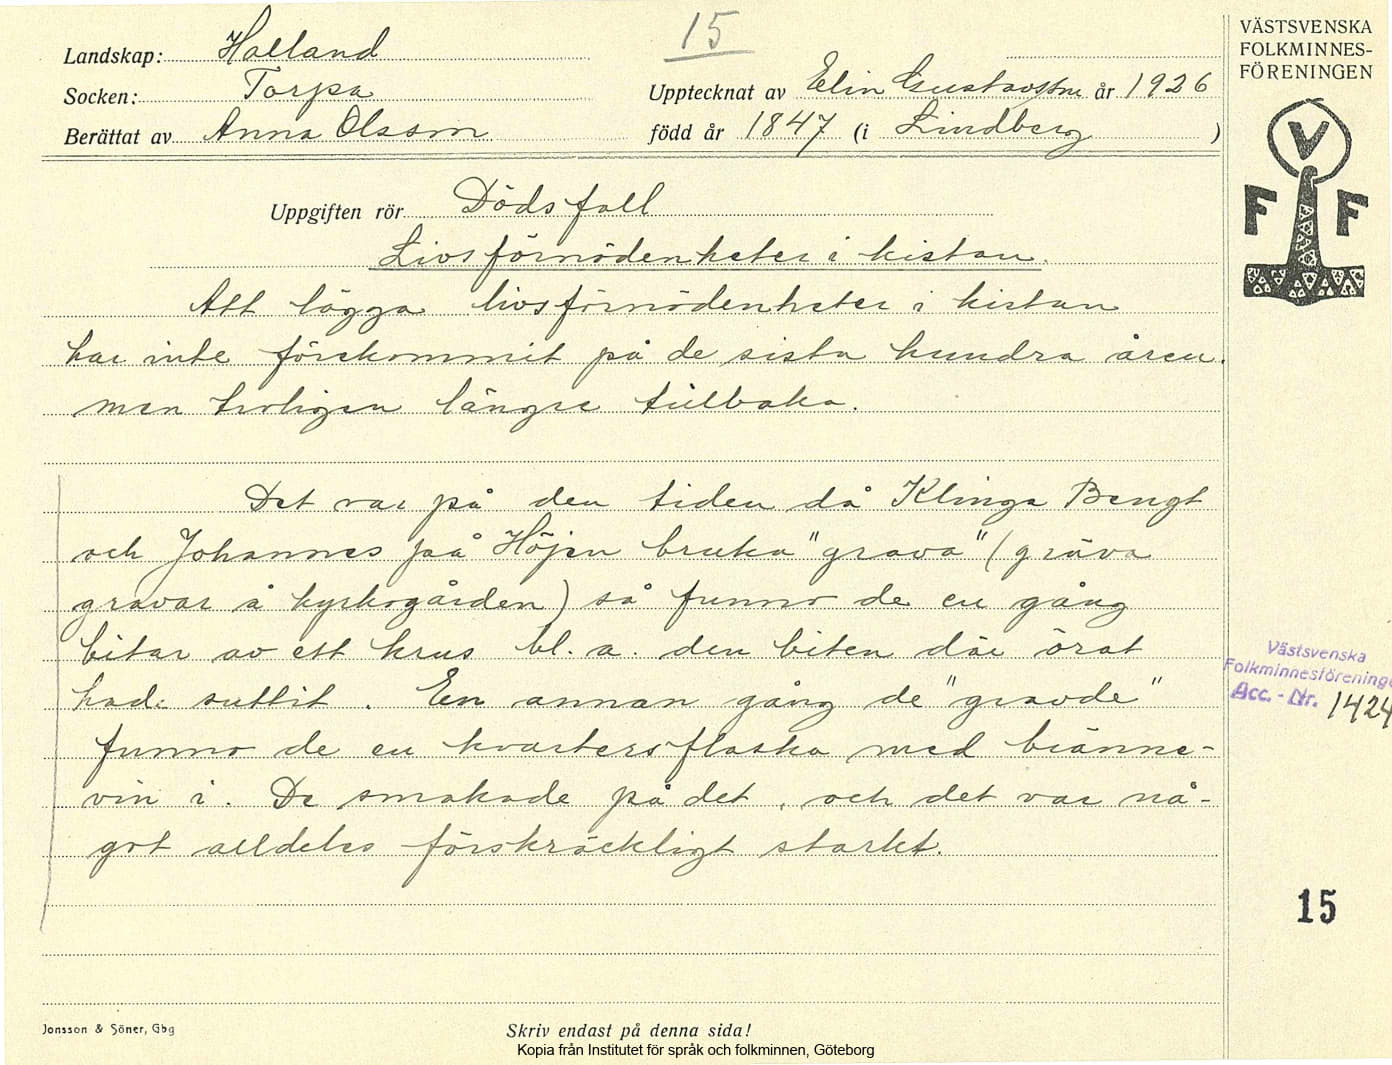 15
Landskap: Halland
Socken: Torpa
Berättat av Anna Olsson
Upptecknat av Elin Gustavsson år 1926
född år 1847 (i Lindberg )
VÄSTSVENSKA
FOLKMINNES-
FÖRENINGEN
V
F F
Uppgiften rör Dödsfall
Livsförnödenheter i kistan.
Att lägga livsförnödenheter i kistan
har inte förekommit på de sista hundra åren.
men troligen längre tillbaka.
Det var på den tiden då Klinga Bengt
och Johannes på Höjen bruka "grava" (gräva
gravar å kyrkogården) så funno de en gång
bitar av ett krus bl. a. den biten där örat
hade suttit. En annan gång de "gravde"
funno de en kvartersflaska med bränne-
vin i. De smakade på det, och det var nå-
got alldeles förskräckligt starkt.
Västsvenska
Folkminnesföreninge
Acc. - Nr. 1424
15
Jonsson & Söner, Gbg
Skriv endast på denna sida!
Kopia från Institutet för språk och folkminnen, Göteborg